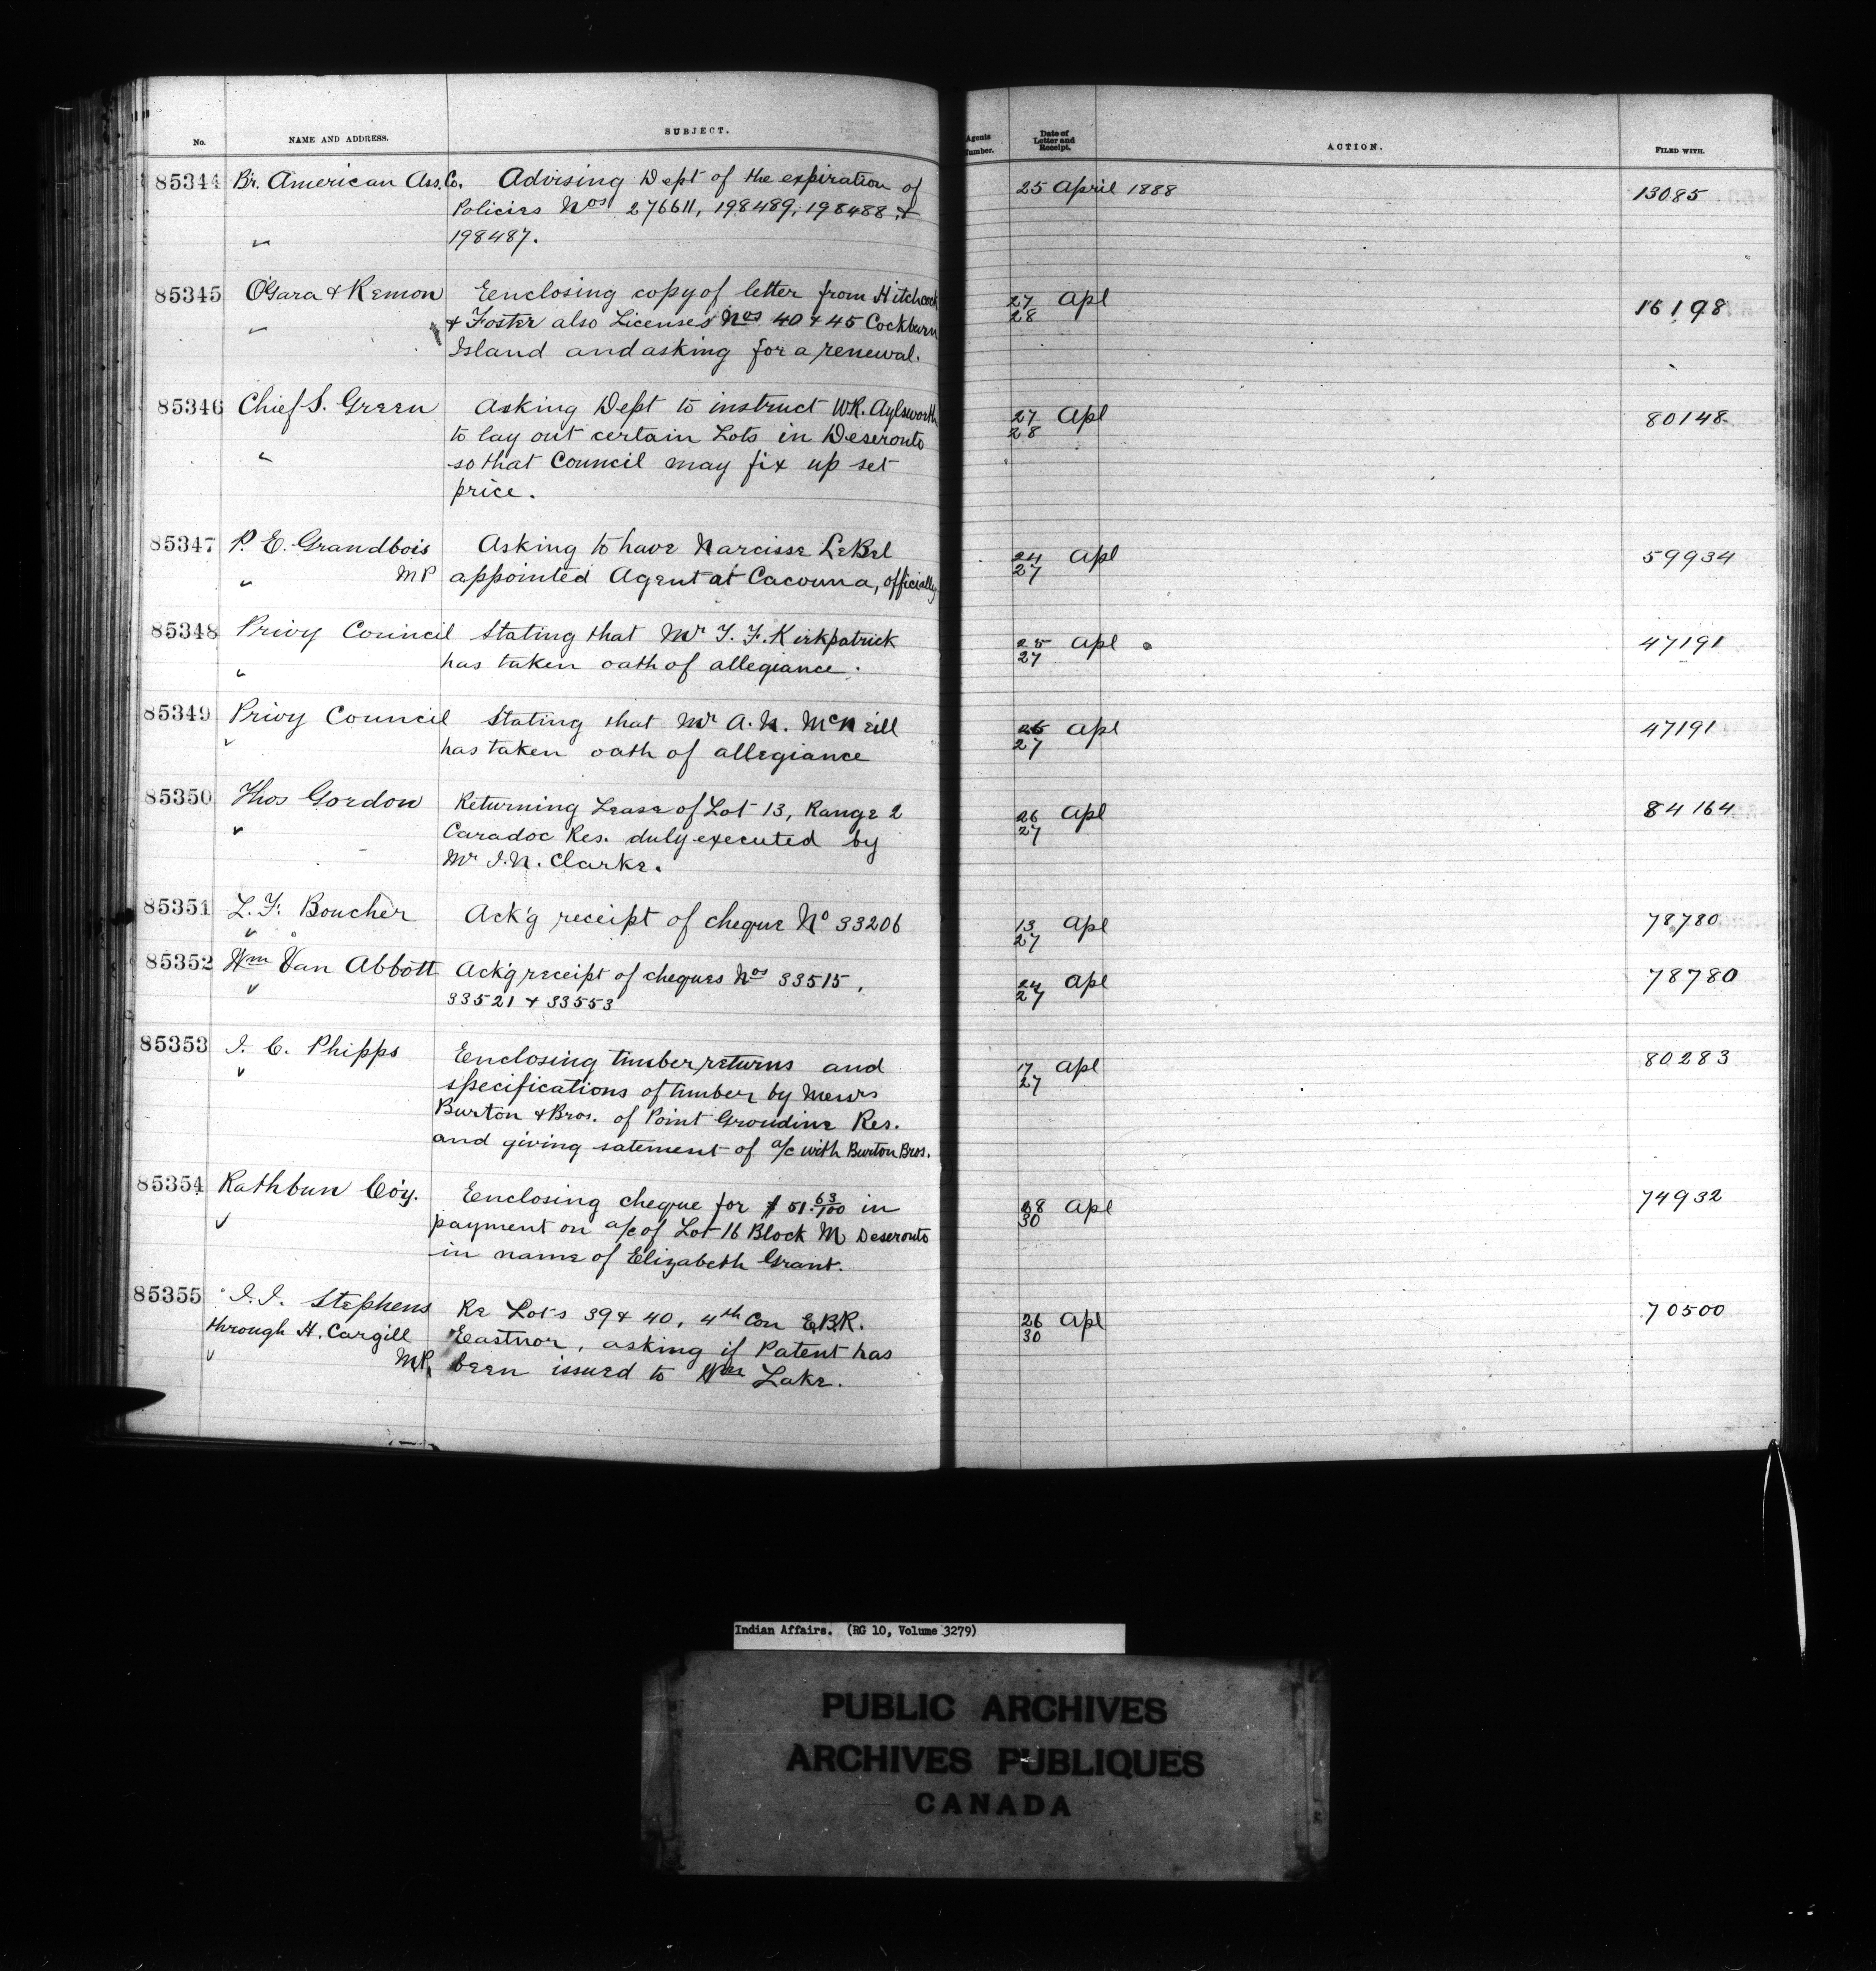 No. NAME AND ADDRESS. SUBJECT. Agents Number. Date of Letter and Receipt. ACTION. FILED WITH.
85344 Br. American Ass. Co. Advising Dept of the expiration of 25 April 1888 13085
Policies Nos 276611, 198489, 198488 &
198487.
85345 O'Gara & Remon Eenclosing copy of letter from Hitchcock 27 Apl 16198
& Foster also Licenses Nos 40 & 45 Cockburn 28
Island and asking for a renewal.
85346 Chief S. Green Asking Dept to instruct W.R. Aylsworth 27 Apl 80148
to lay out certain Lots in Deseronto 28
so that Council may fix up set
price.
85347 P. E. Grandbois Asking to have Narcisse LeBel 24 Apl 59934
MP appointed Agent at Cacouna, officially 27
85348 Privy Council Stating that Mr T. F. Kirkpatrick 25 Apl 47191
has taken oath of allegiance. 27
85349 Privy Council Stating that Mr A. N. McNeill 26 Apl 47191
has taken oath of allegiance 27
85350 Thos Gordon Returning Lease of Lot 13, Range 2 26 Apl 84164
Caradoc Res. duly executed by 27
Mr I. N. Clarke.
85351 L. F. Boucher Ack'g receipt of cheque No 33206 13 Apl 78780
27
85352 Wm Van Abbott Ack'g receipt of cheques Nos 33515, 24 Apl 78780
33521 & 33553 27
85353 J. C. Phipps Eenclosing timber returns and 17 Apl 80283
specifications of timber by Messrs 27
Burton & Bros. of Point Groudine Res.
and giving satement of a/c with Burton Bros.
85354 Rathbun Co'y. Eenclosing cheque for $51.63/100 in 28 Apl 74932
payment on a/c of Lot 16 Block M Deseronto 30
in name of Elizabeth Grant.
85355 J. J. Stephens Re Lots 39 & 40, 4th Con E.B.R. 26 Apl 70500
through H. Cargill Eastnor, asking if Patent has 30
M.P. been issued to Wm Lake.
Indian Affairs. (RG 10, Volume 3279)
PUBLIC ARCHIVES
ARCHIVES PUBLIQUES
CANADA